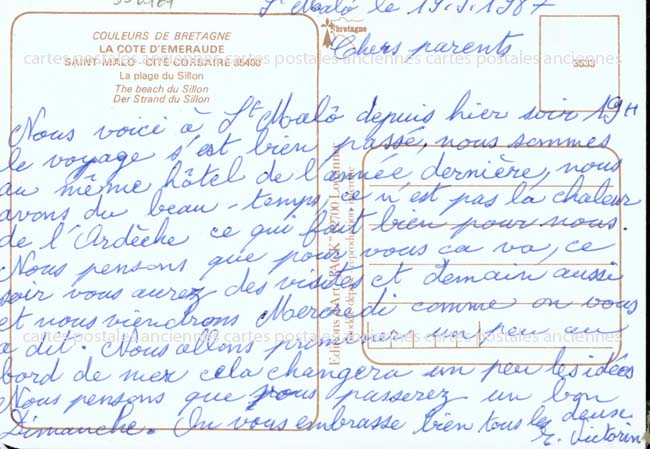 St Malô le 19.9.1987
bretagne
COULEURS DE BRETAGNE
LA COTE D'EMERAUDE
SAINT-MALO - CITE CORSAIRE 35400
La plage du Sillon
The beach du Sillon
Der Strand du Sillon
3533
cartes postales anciennes cartes postales anciennes cartes postales anciennes
Chers parents
Nous voici à St Malô depuis hier soir 19H
le voyage s'est bien passé, nous sommes
au même hôtel de l'année dernière, nous
avons du beau-temps, ce n'est pas la chaleur
de l'Ardèche ce qui fait bien pour nous.
Nous pensons que pour vous ca va, ce
soir vous aurez des visites et demain aussi
et nous viendrons Mercredi comme on vous
a dit. Nous allons promener un peu au
bord de mer cela changera un peu les idées
Nous pensons que vous passerez un bon
Dimanche. On vous embrasse bien tous les deux
Victorin
Editions d'Art "JACK"
reproduction